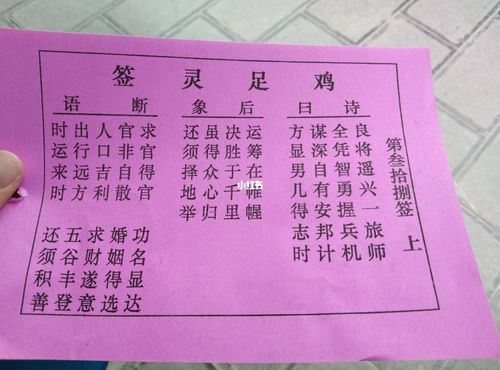 鸡足灵签
第叁拾捌签 上
诗曰
良将遥兴一旅师
全凭智勇握兵机
谋深自有安邦计
方显男几得志时
后象
运筹在帷幄
决胜于千里
虽得众心归
还须择地举
断语
求官得官
官非自散
人口吉利
出行远方
时运来时
功名显达
婚姻得选
求财遂意
五谷丰登
还须积善
小红书